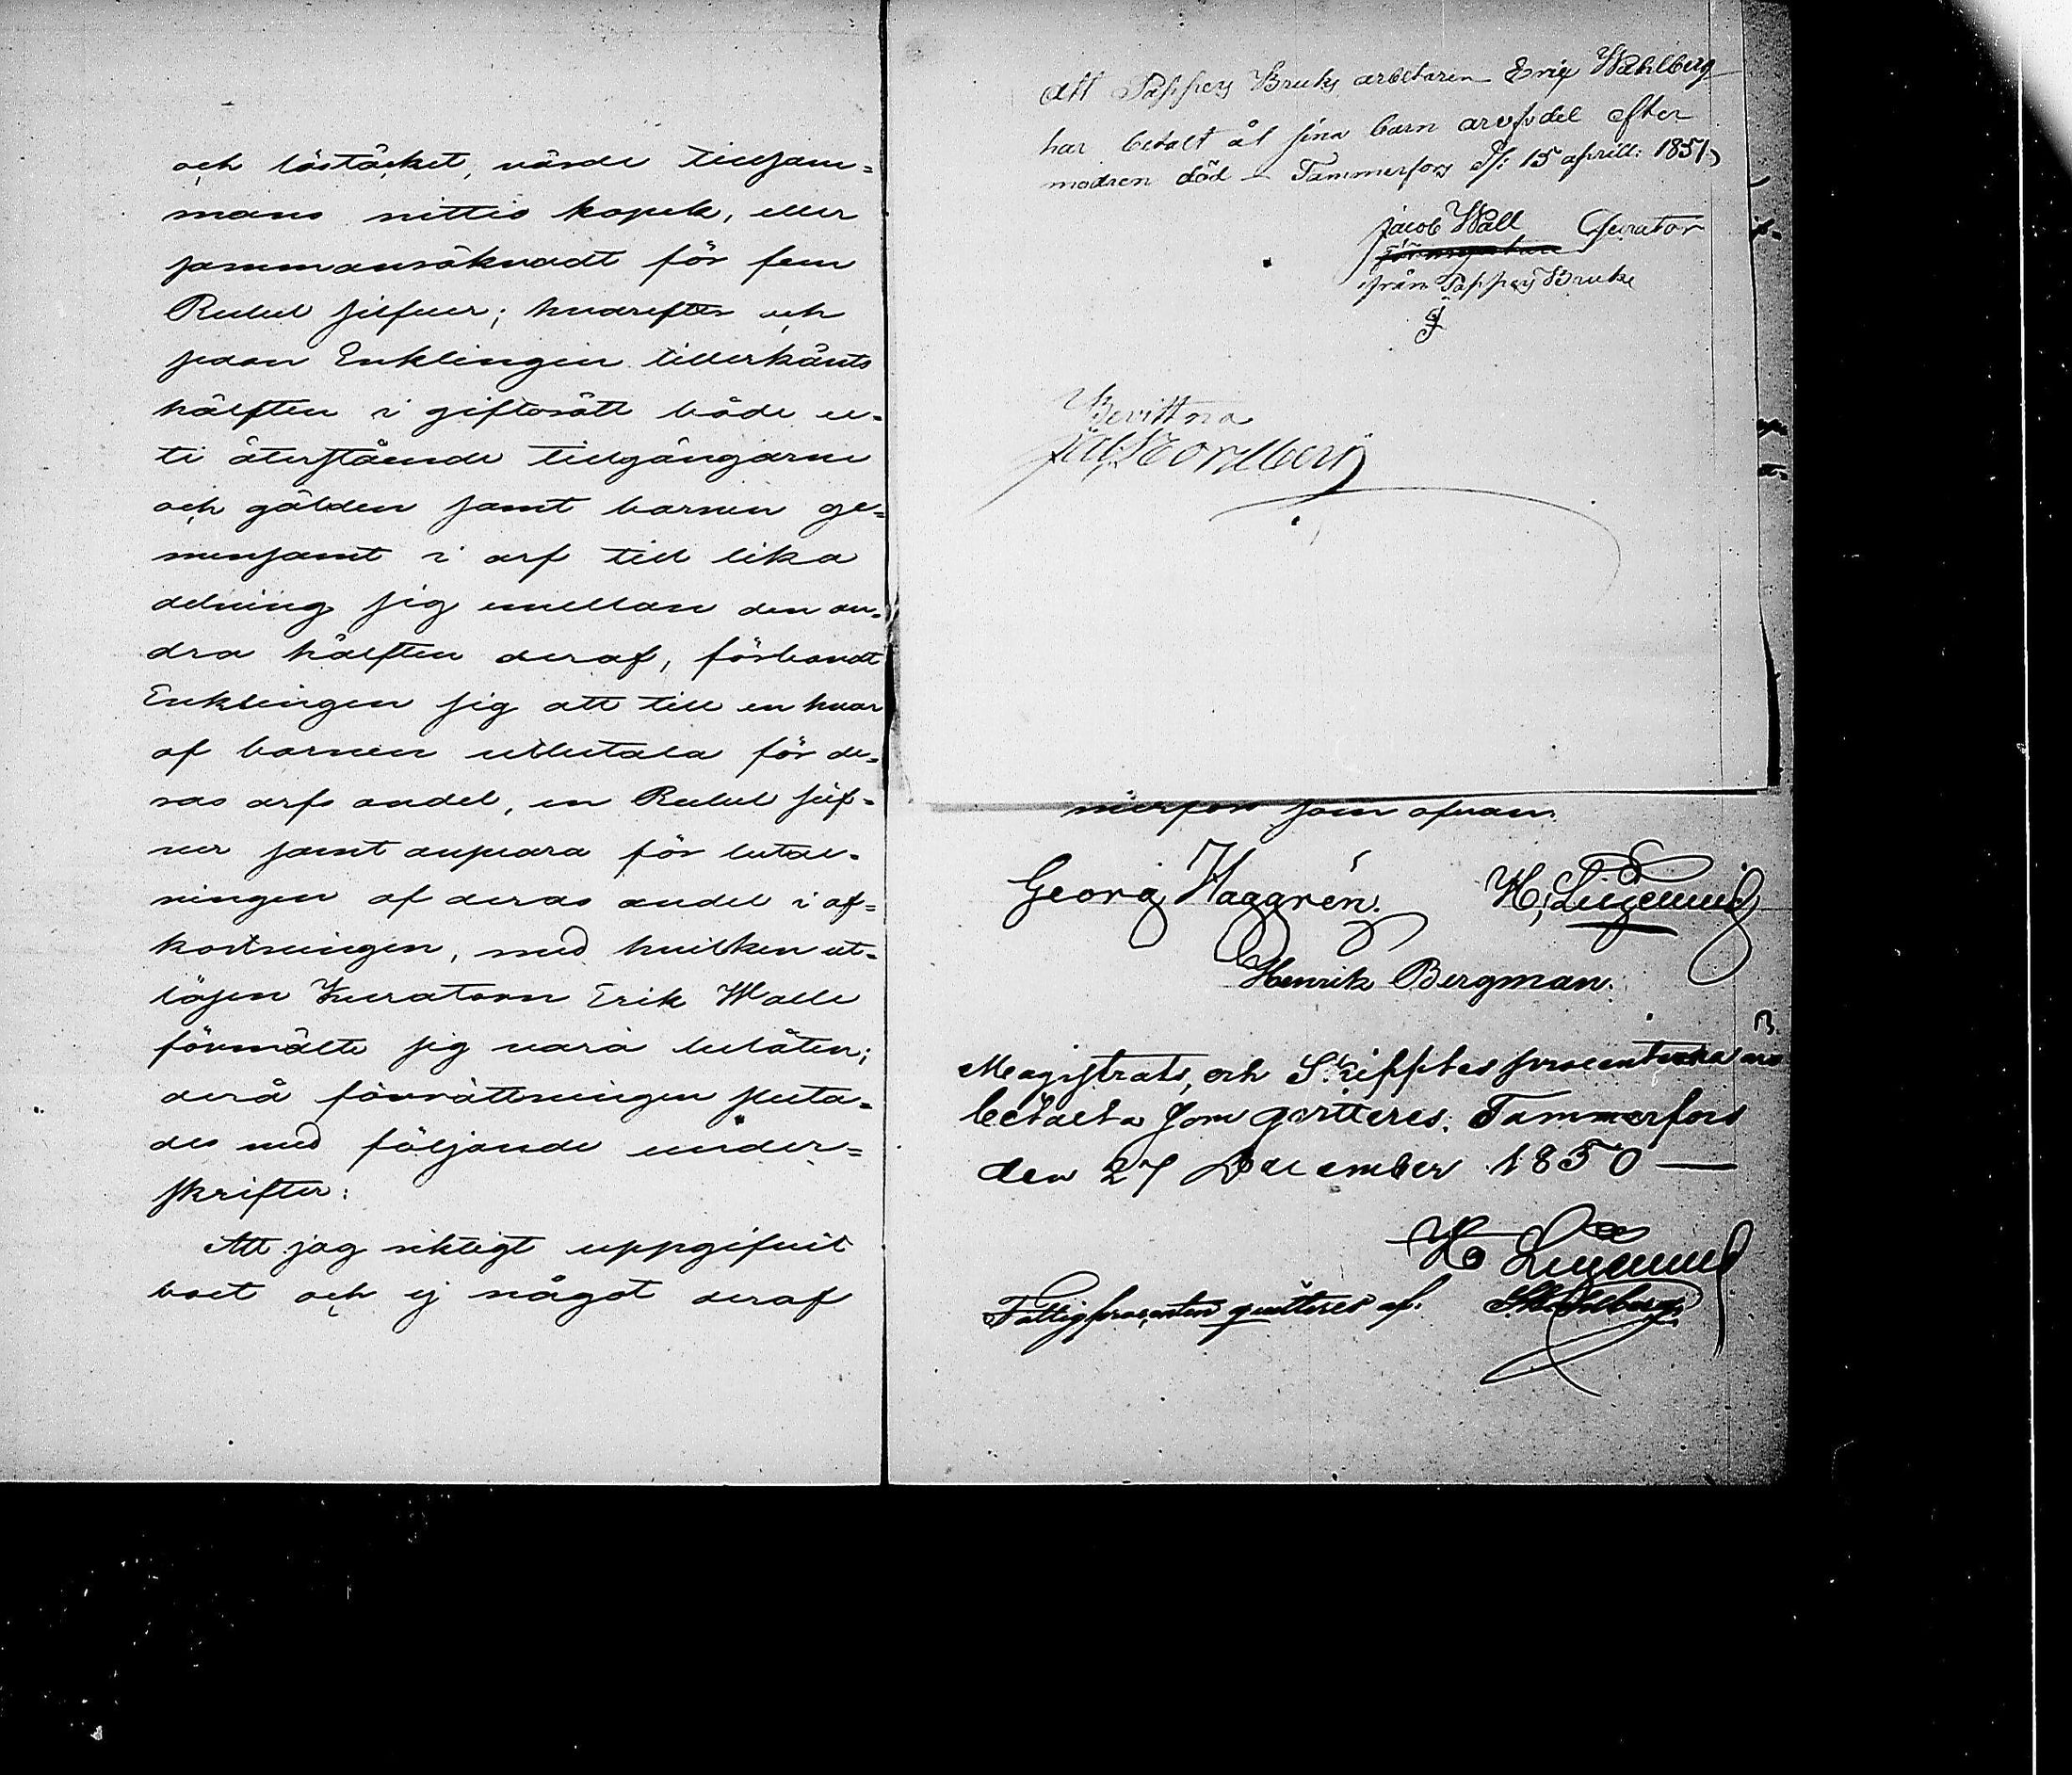 och löstäcket, värde tillsam=
mans nittio kopek, eller
sammanräknadt för fem
Rubel silfver; hvarefter och
sedan Enklingen tillerkänts
hälften i giftorätt både u=
ti återstående tillgångarne
och gälden samt barnen ge=
mensamt i arf till lika
delning sig emellan den an=
dra hälften deraf, förbandt
Enklingen sig att till en hvar
af barnen utbetala för de=
ras arfs andel, en Rubel silf=
ver samt ansvara för betal=
ningen af deras andel i af=
kortningen, med hvilken ut=
lösen Kuratorn Erik Walle
förmälte sig vara belåten;
derå förrättningen sluta=
des med följande under=
skrifter:
Att jag riktigt uppgifvit
boet och ej något deraf
Att Pappers Bruks arbetaren Eric Wahlberg
har betalt åt sina barn arfsdel efter
modren död – Tammerfors d: 15 aprill: 1851
Jacob Wall Curator
från Pappers Bruke
Bevittna
Nordberg
merfors som ofvan.
Georg Haggrén.
Henrik Bergman.
Magistrats, och Skifftes procenterna äro
betalta som qvitteres. Tammerfors
den 27 December 1850 —
Fattigprocenten quitteres af: